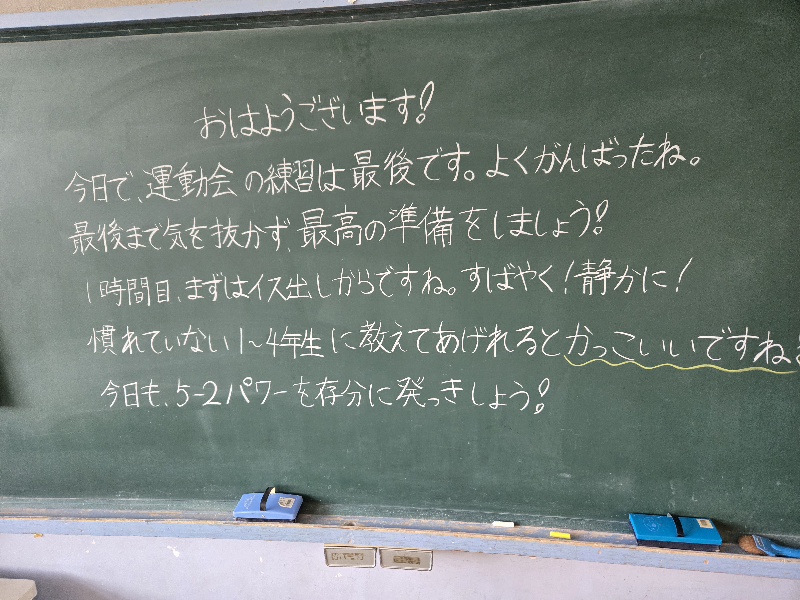 おはようございます!
今日で、運動会の練習は最後です。よくがんばったね。
最後まで気を抜かず、最高の準備をしましょう!
1時間目、まずはイス出しからですね。すばやく!静かに!
慣れていない1～4年生に教えてあげれるとかっこいいですね
今日も、5-2パワーを存分に発っきしよう!